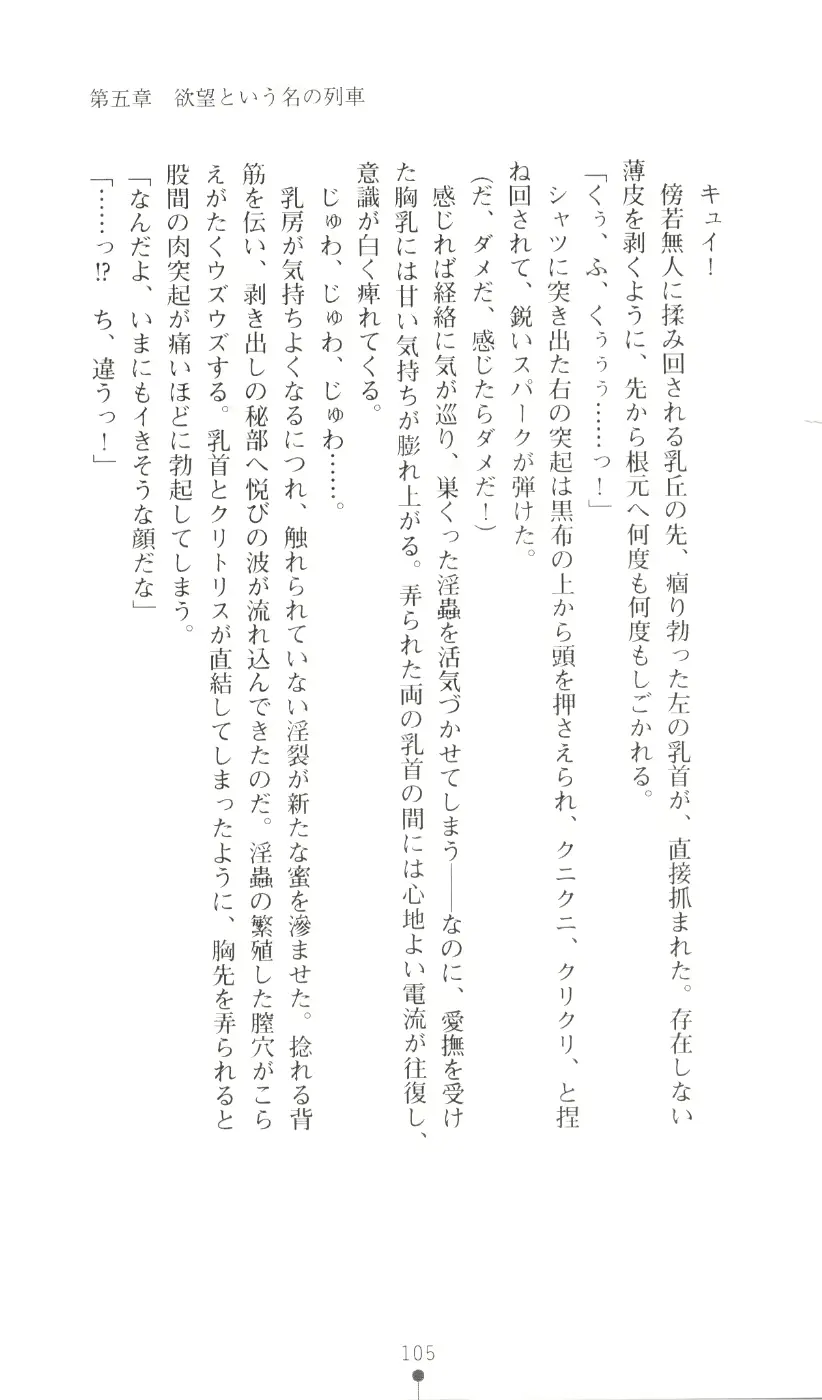 第五章　欲望という名の列車
キュイ！
傍若無人に揉み回される乳丘の先、痼り勃った左の乳首が、直接抓まれた。存在しない
薄皮を剥くように、先から根元へ何度も何度もしごかれる。
「くぅ、ふ、くぅぅぅ……っ！」
シャツに突き出た右の突起は黒布の上から頭を押さえられ、クニクニ、クリクリ、と捏
ね回されて、鋭いスパークが弾けた。
(だ、ダメだ、感じたらダメだ！)
感じれば経絡に気が巡り、巣くった淫蟲を活気づかせてしまう――なのに、愛撫を受け
た胸乳には甘い気持ちが膨れ上がる。弄られた両の乳首の間には心地よい電流が往復し、
意識が白く痺れてくる。
じゅわ、じゅわ、じゅわ……。
乳房が気持ちよくなるにつれ、触れられていない淫裂が新たな蜜を滲ませた。捻れる背
筋を伝い、剥き出しの秘部へ悦びの波が流れ込んできたのだ。淫蟲の繁殖した膣穴がこら
えがたくウズウズする。乳首とクリトリスが直結してしまったように、胸先を弄られると
股間の肉突起が痛いほどに勃起してしまう。
「なんだよ、いまにもイきそうな顔だな」
「……っ!?　ち、違うっ！」
105